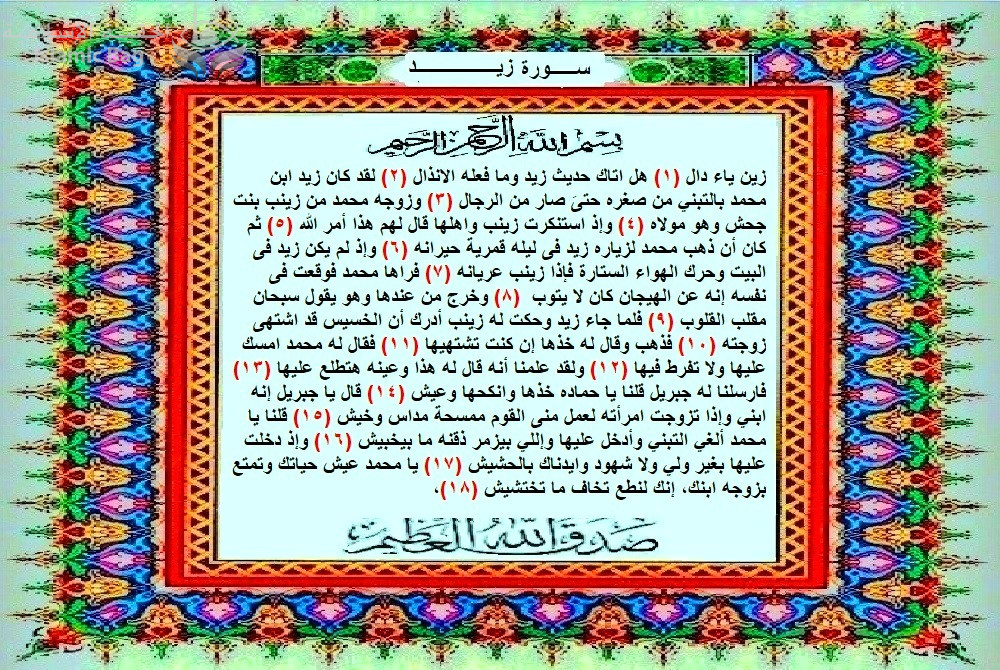 سورة زيد
بسم الله الرحمن الرحيم
زين ياء دال (١) هل اتاك حديث زيد وما فعله الانذال (٢) لقد كان زيد ابن
محمد بالتبني من صغره حتىَ صار من الرجال (٣) وزوجه محمد من زينب بنت
جحش وهو مولاه (٤) وإذ استنكرت زينب واهلها قال لهم هذا أمر الله (٥) ثم
كان أن ذهب محمد لزياره زيد فى ليله قمرية حيرانه (٦) وإذ لم يكن زيد فى
البيت وحرك الهواء الستارة فإذا زينب عريانه (٧) فراها محمد فوقعت فى
نفسه إنه عن الهيجان كان لا يتوب (٨) وخرج من عندها وهو يقول سبحان
مقلب القلوب (٩) فلما جاء زيد وحكت له زينب أدرك أن الخسيس قد اشتهى
زوجته (١٠) فذهب وقال له خذها إن كنت تشتهيها (١١) فقال له محمد امسك
عليها ولا تفرط فيها (١٢) ولقد علمنا أنه قال له هذا وعينه هتطلع عليها (١٣)
فارسلنا له جبريل قلنا يا حماده خذها وانكحها وعيش (١٤) قال يا جبريل إنه
ابني وإذا تزوجت امرأته لعمل منى القوم ممسحة مداس وخيش (١٥) قلنا يا
محمد ألغي التبني وأدخل عليها وإللي بيزمر ذقنه ما بيخبيش (١٦) وإذ دخلت
عليها بغير ولي ولا شهود وايدناك بالحشيش (١٧) يا محمد عيش حياتك وتمتع
بزوجه ابنك، إنك لنطع تخاف ما تختشيش (١٨)،
صدق الله العظيم